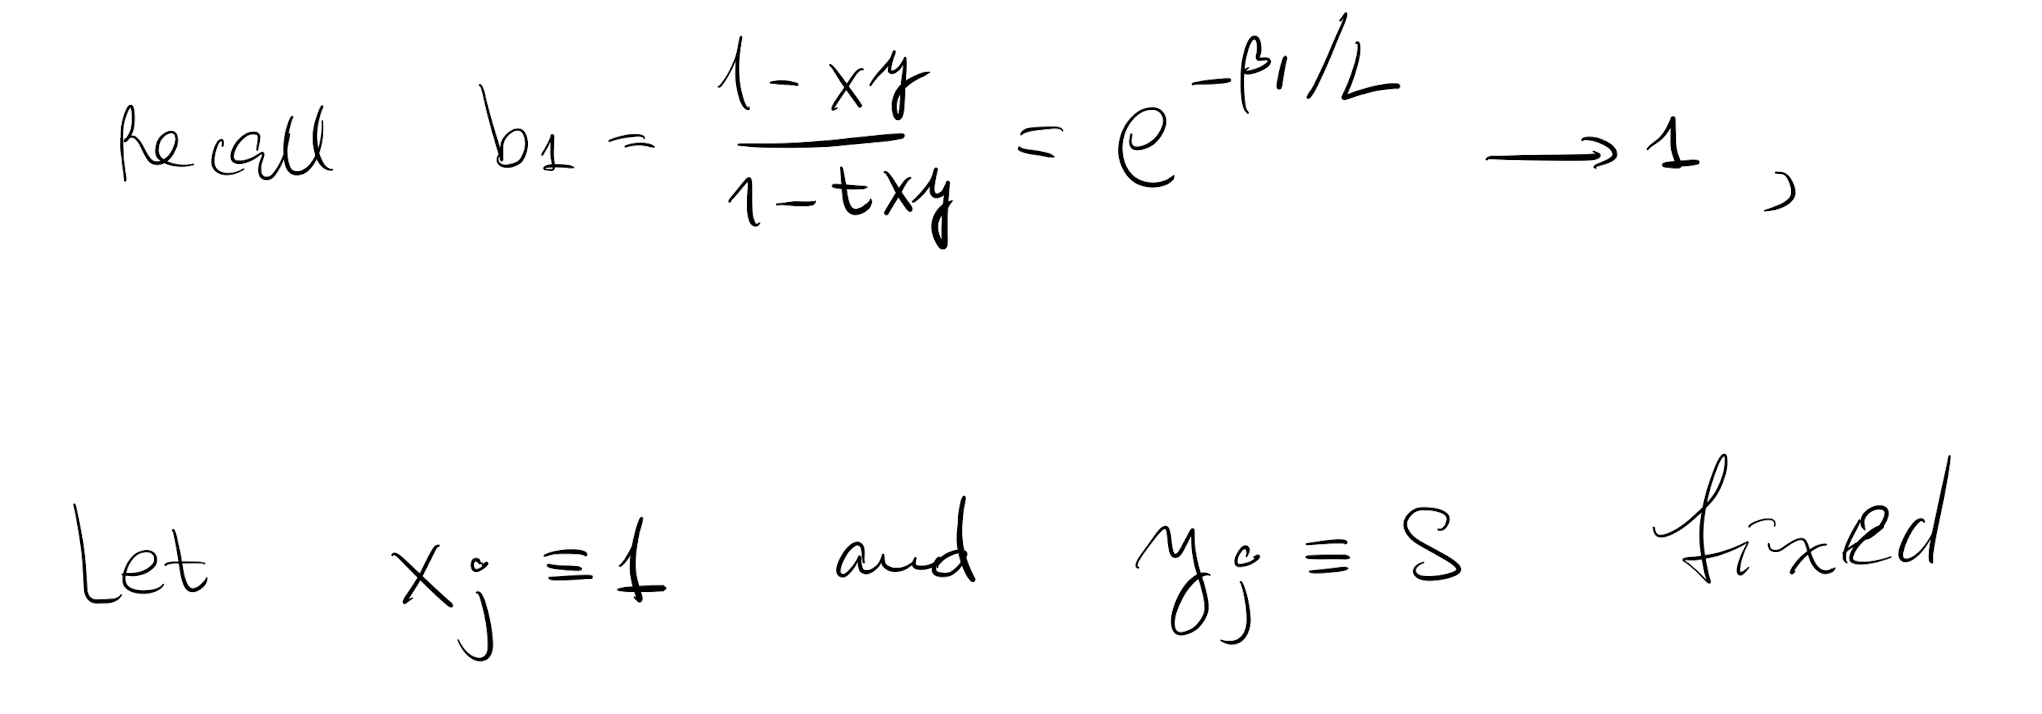 Recall b₁ = (1-xy)/(1-txy) = e^(-β₁/L) ⟶ 1 ,
Let xⱼ ≡ 1 and yⱼ ≡ s fixed